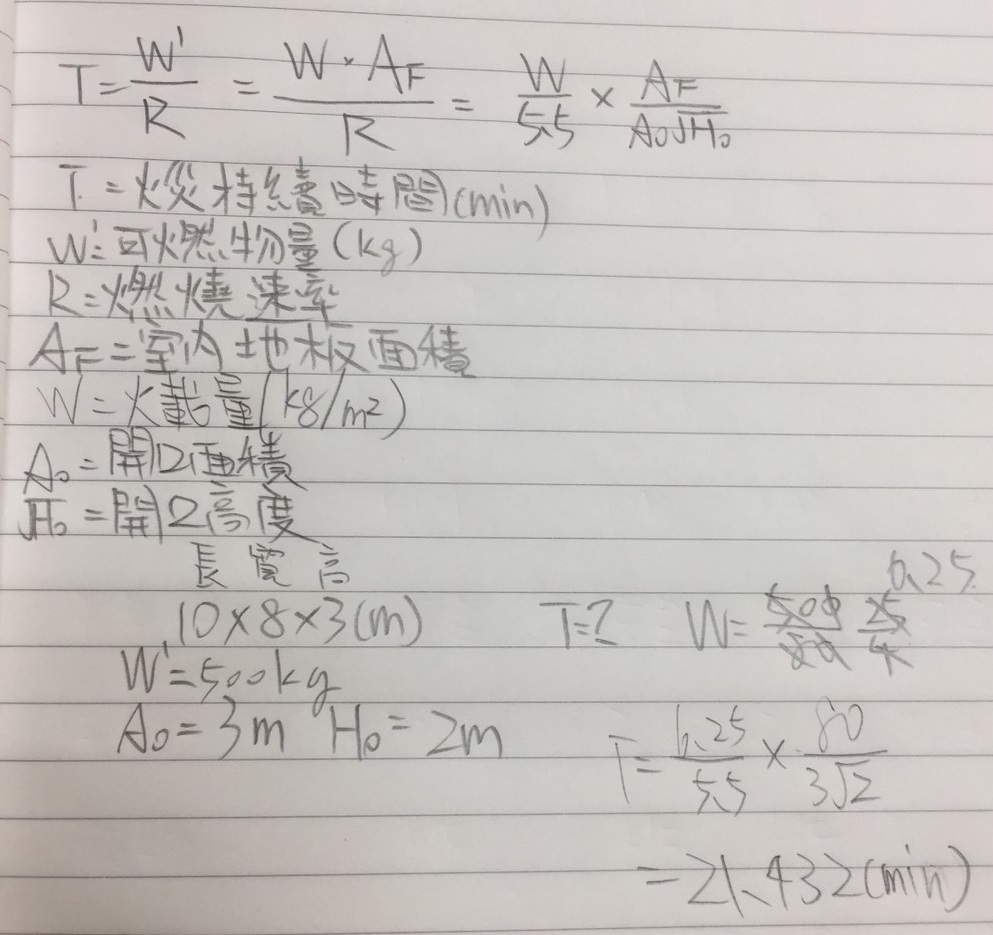 T = W'/R = W·A_F/R = W/5.5 × A_F/A₀√H₀
T = 火災持續時間(min)
W' = 可燃物量(kg)
R = 燃燒速率
A_F = 室內地板面積
W = 火載量(kg/m²)
A₀ = 開口面積
√H₀ = 開口高度
長 寬 高
10×8×3(m)
W' = 500kg
A₀ = 3m H₀ = 2m
T=? W = 500/80 25/4 6.25
T = 6.25/5.5 × 80/3√2
= 21.432(min)